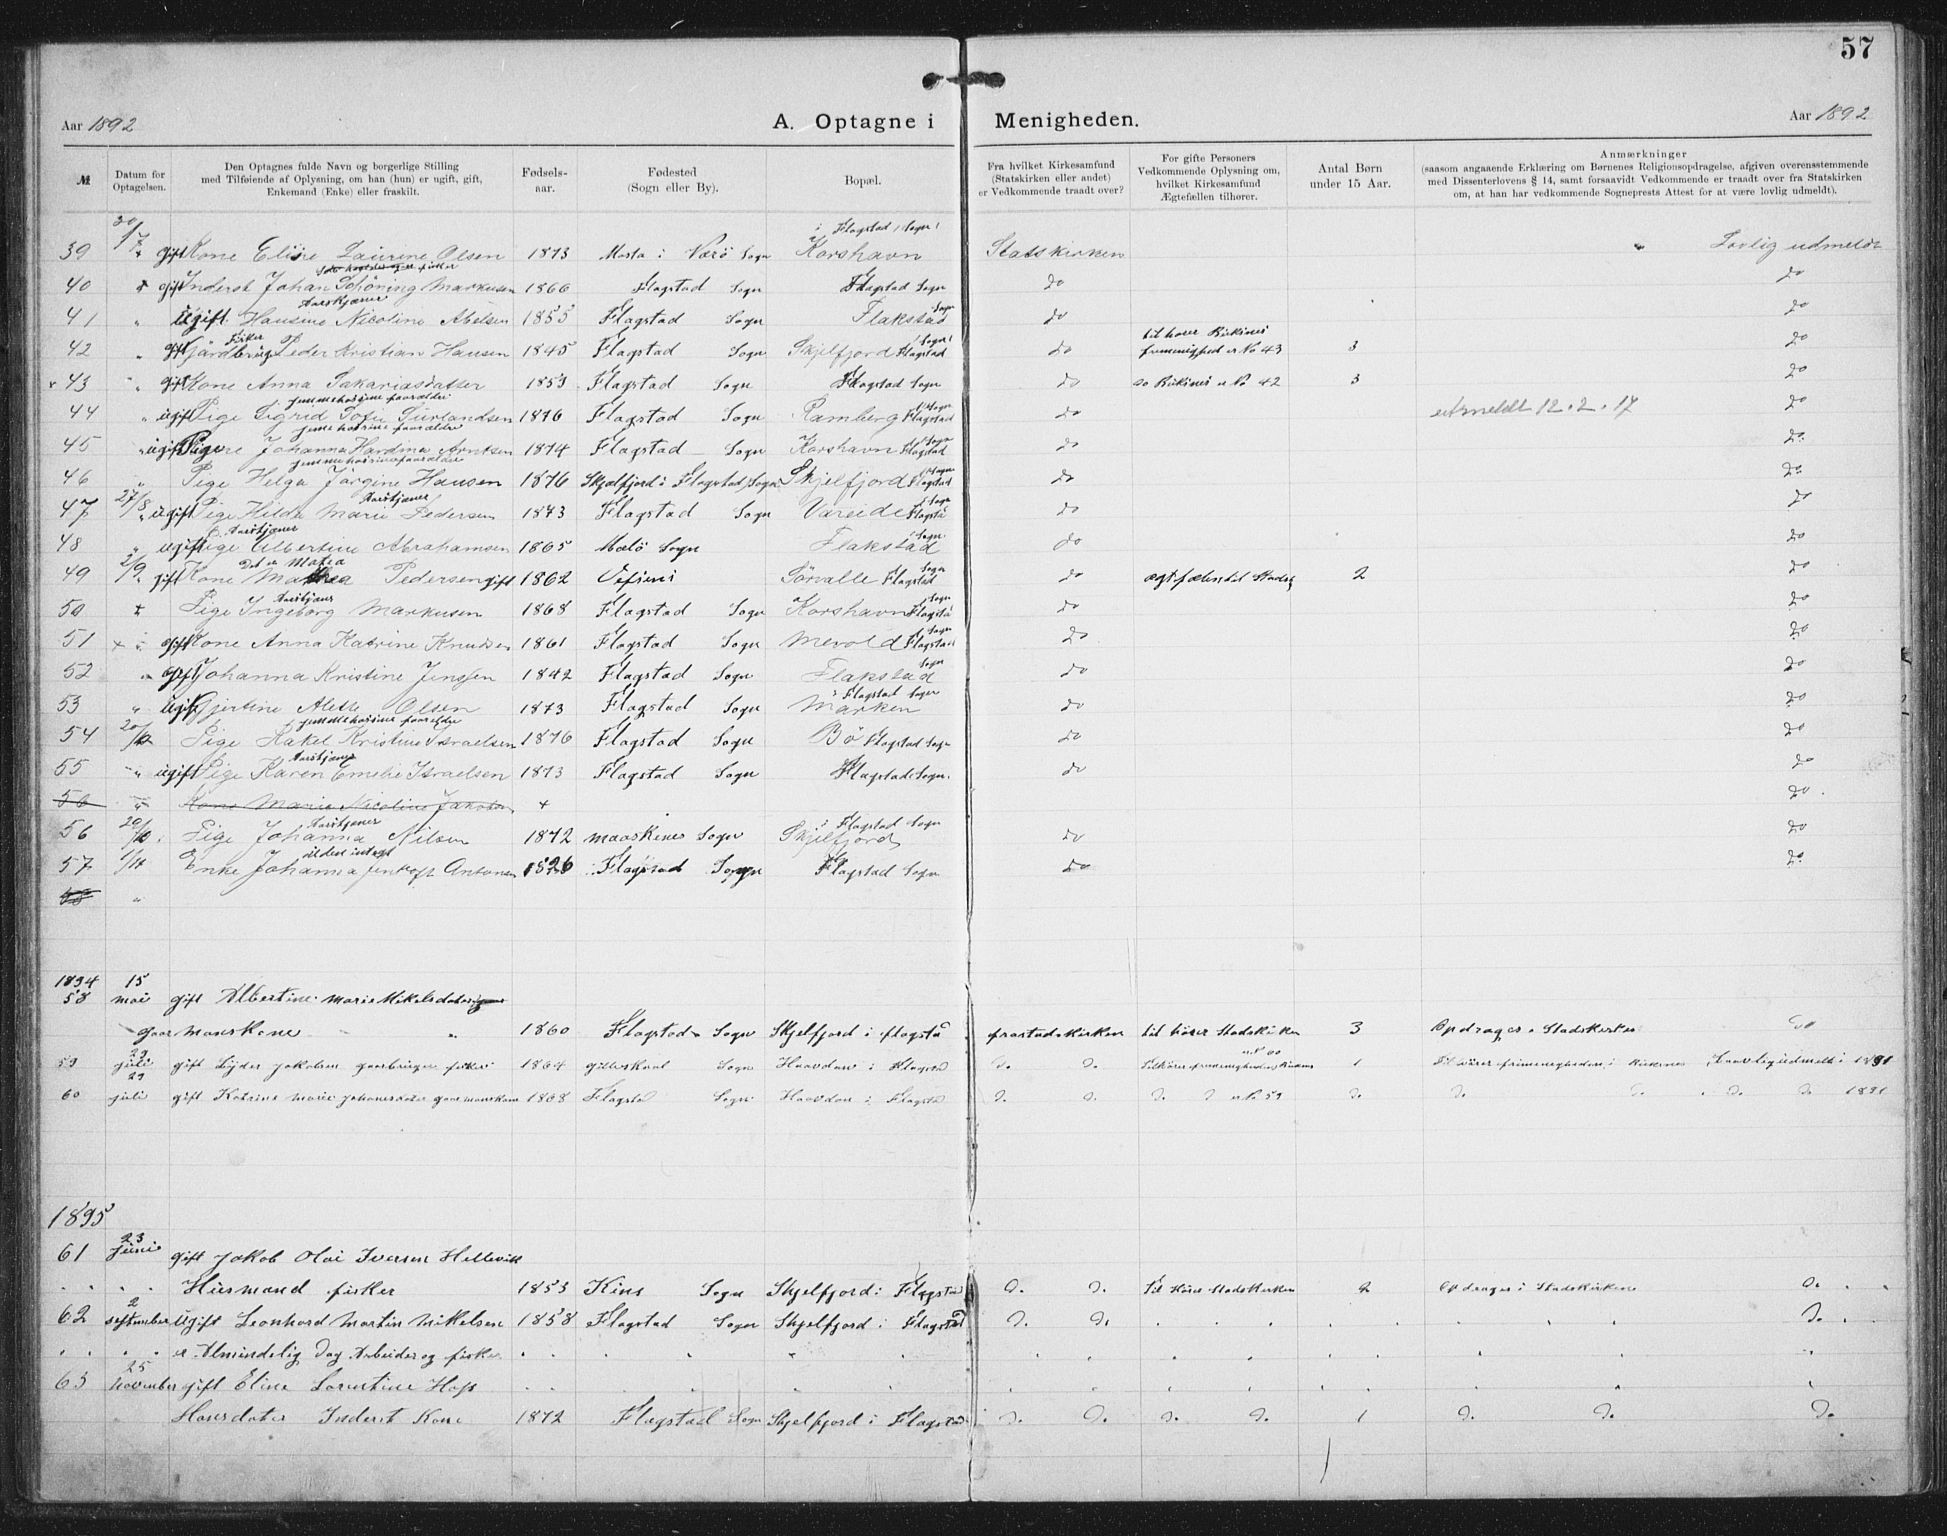 57
Aar 1892 A. Optagne i Menigheden. Aar 1892
№ Datum for Optagelsen. Den Optagnes fulde Navn og borgerlige Stilling med Tilføiende af Oplysning, om han (hun) er ugift, gift, Enkemand (Enke) eller fraskilt. Fødsels-aar. Fødested (Sogn eller By). Bopæl. Fra hvilket Kirkesamfund (Statskirken eller andet) er Vedkommende traadt over? For gifte Personers Vedkommende Oplysning om, hvilket Kirkesamfund Ægtefællen tilhører. Antal Børn under 15 Aar. Anmærkninger (saasom angaaende Erklæring om Børnenes Religionsopdragelse, afgiven overensstemmende med Dissenterlovens § 14, samt forsaavidt Vedkommende er traadt over fra Statskirken om, at han har vedkommende Sogneprests Attest for at være lovlig udmeldt).
30/7 i Flagstad Sogn
39 " gift Kone Elise Laurine Olsen 1873 i Værö Sogn Korshavn Statskirken " Lovlig udmeldt
40 gift Inderst Johan Schöning Markusen 1866 Flagstad Sogn Flagstad Sogn do do
41 " ugift Hansine Nicoline Abelsen 1855 Flagstad Sogn Flakstad Sogn do do
42 " gift Peder Kristian Hansen 1845 Flagstad Sogn Skjelfjord Flagstad Sogn do til hører frimenighed No 43 3 do
43 " gift Kone Anna Sakariasdatter 1853 Flagstad Sogn Flagstad Sogn do No 42 3 do
44 " ugift Pige Sigrid Sofie 1876 Flagstad Sogn Ramberg Flagstad Sogn do utmeldt 12.2.17 do
45 " ugift Pige Johanna Hardina Arntsen 1874 Flagstad Sogn Korshavn Flagstad Sogn do do
46 " Pige Helga Jörgine Hansen 1876 Skjælfjord i Flagstad Sogn Skjelfjord Flagstad Sogn do do
47 27/8 " ugift Pige Hilda Marie Pedersen 1873 Flagstad Sogn Vareide Flagsta Sogn do do
48 " ugift Pige Albertine Abrahamsen 1865 Sogn Flakstad Sogn do do
Det er Matea
49 2/9 " gift Kone Mathea Pedersen gift 1862 Vefsnes Sörvalle Flagstad Sogn do 2 do
50 Pige Ingeborg Markusen 1868 Flagstad Sogn Korshavn Flagsta Sogn do do
51 gift Kone Anna Katrine Knudsen 1861 Flagstad Sogn Mevold Flagstad Sogn do do
52 " gift Johanna Kristine Jenssen 1842 Flagstad Sogn Flakstad Sogn do do
53 " ugift Gjertine Olsen 1873 Flagstad Sogn Marken i Flagstad Sogn do do
54 Pige Rakel Kristine Israelsen 1876 Flagstad Sogn Bö Flagstad Sogn do do
55 " ugift Pige Karen Emelie Israelsen 1873 Flagstad Sogn Flagstad Sogn. do do
56 " Kone Marie Nicoline Jakobsen do
56 Pige Johanna Nilsen 1872 Sogn Skjelfjord i Flagstad Sogn do do
57 Enke Johanna Antonsen 1826 Flagstad Sogn Flagstad Sogn do do
58 "
1894 15
58 mai gift Albertine Marie Mikelsdater
Gaarmanskone " 1860 Flagstad Sogn Skjelfjord i flagsta frastadskirken til hører Stadskirken 3 Opdrages i Stadskirken do
59 23 juli gift Jakobsen fisker 1864 Sogn i Flagstad D. D. No 60 1 1891
60 23 juli gift Katrine Marie Johanesdater gaarmanskone 1868 Flagsta Sogn i Flagsta D. D. D. D No 59 D. D. D. D. D 1891
1895
61 23 Juni gift Jakob Olai Iversen Hellevik
Husmand fisker 1853 Kins Sogn Skjelfjord i Flagstad D. D. Til Hører Stadskirken 2 Opdrages i Stadskirken D.
62 2 september Ugift Leonhard Martin Mikelsen 1858 Flagstad Sogn Skjelfjord i Flagstad D. D. D.
er Almindelig Dag Arbeider og fisker
63 25 November gift Eline Hop
Hansdater Inderst Kone 1872 Flagstad Sogn Skjelfjord i Flagstad D. D. D. D. 1 D. D. D.